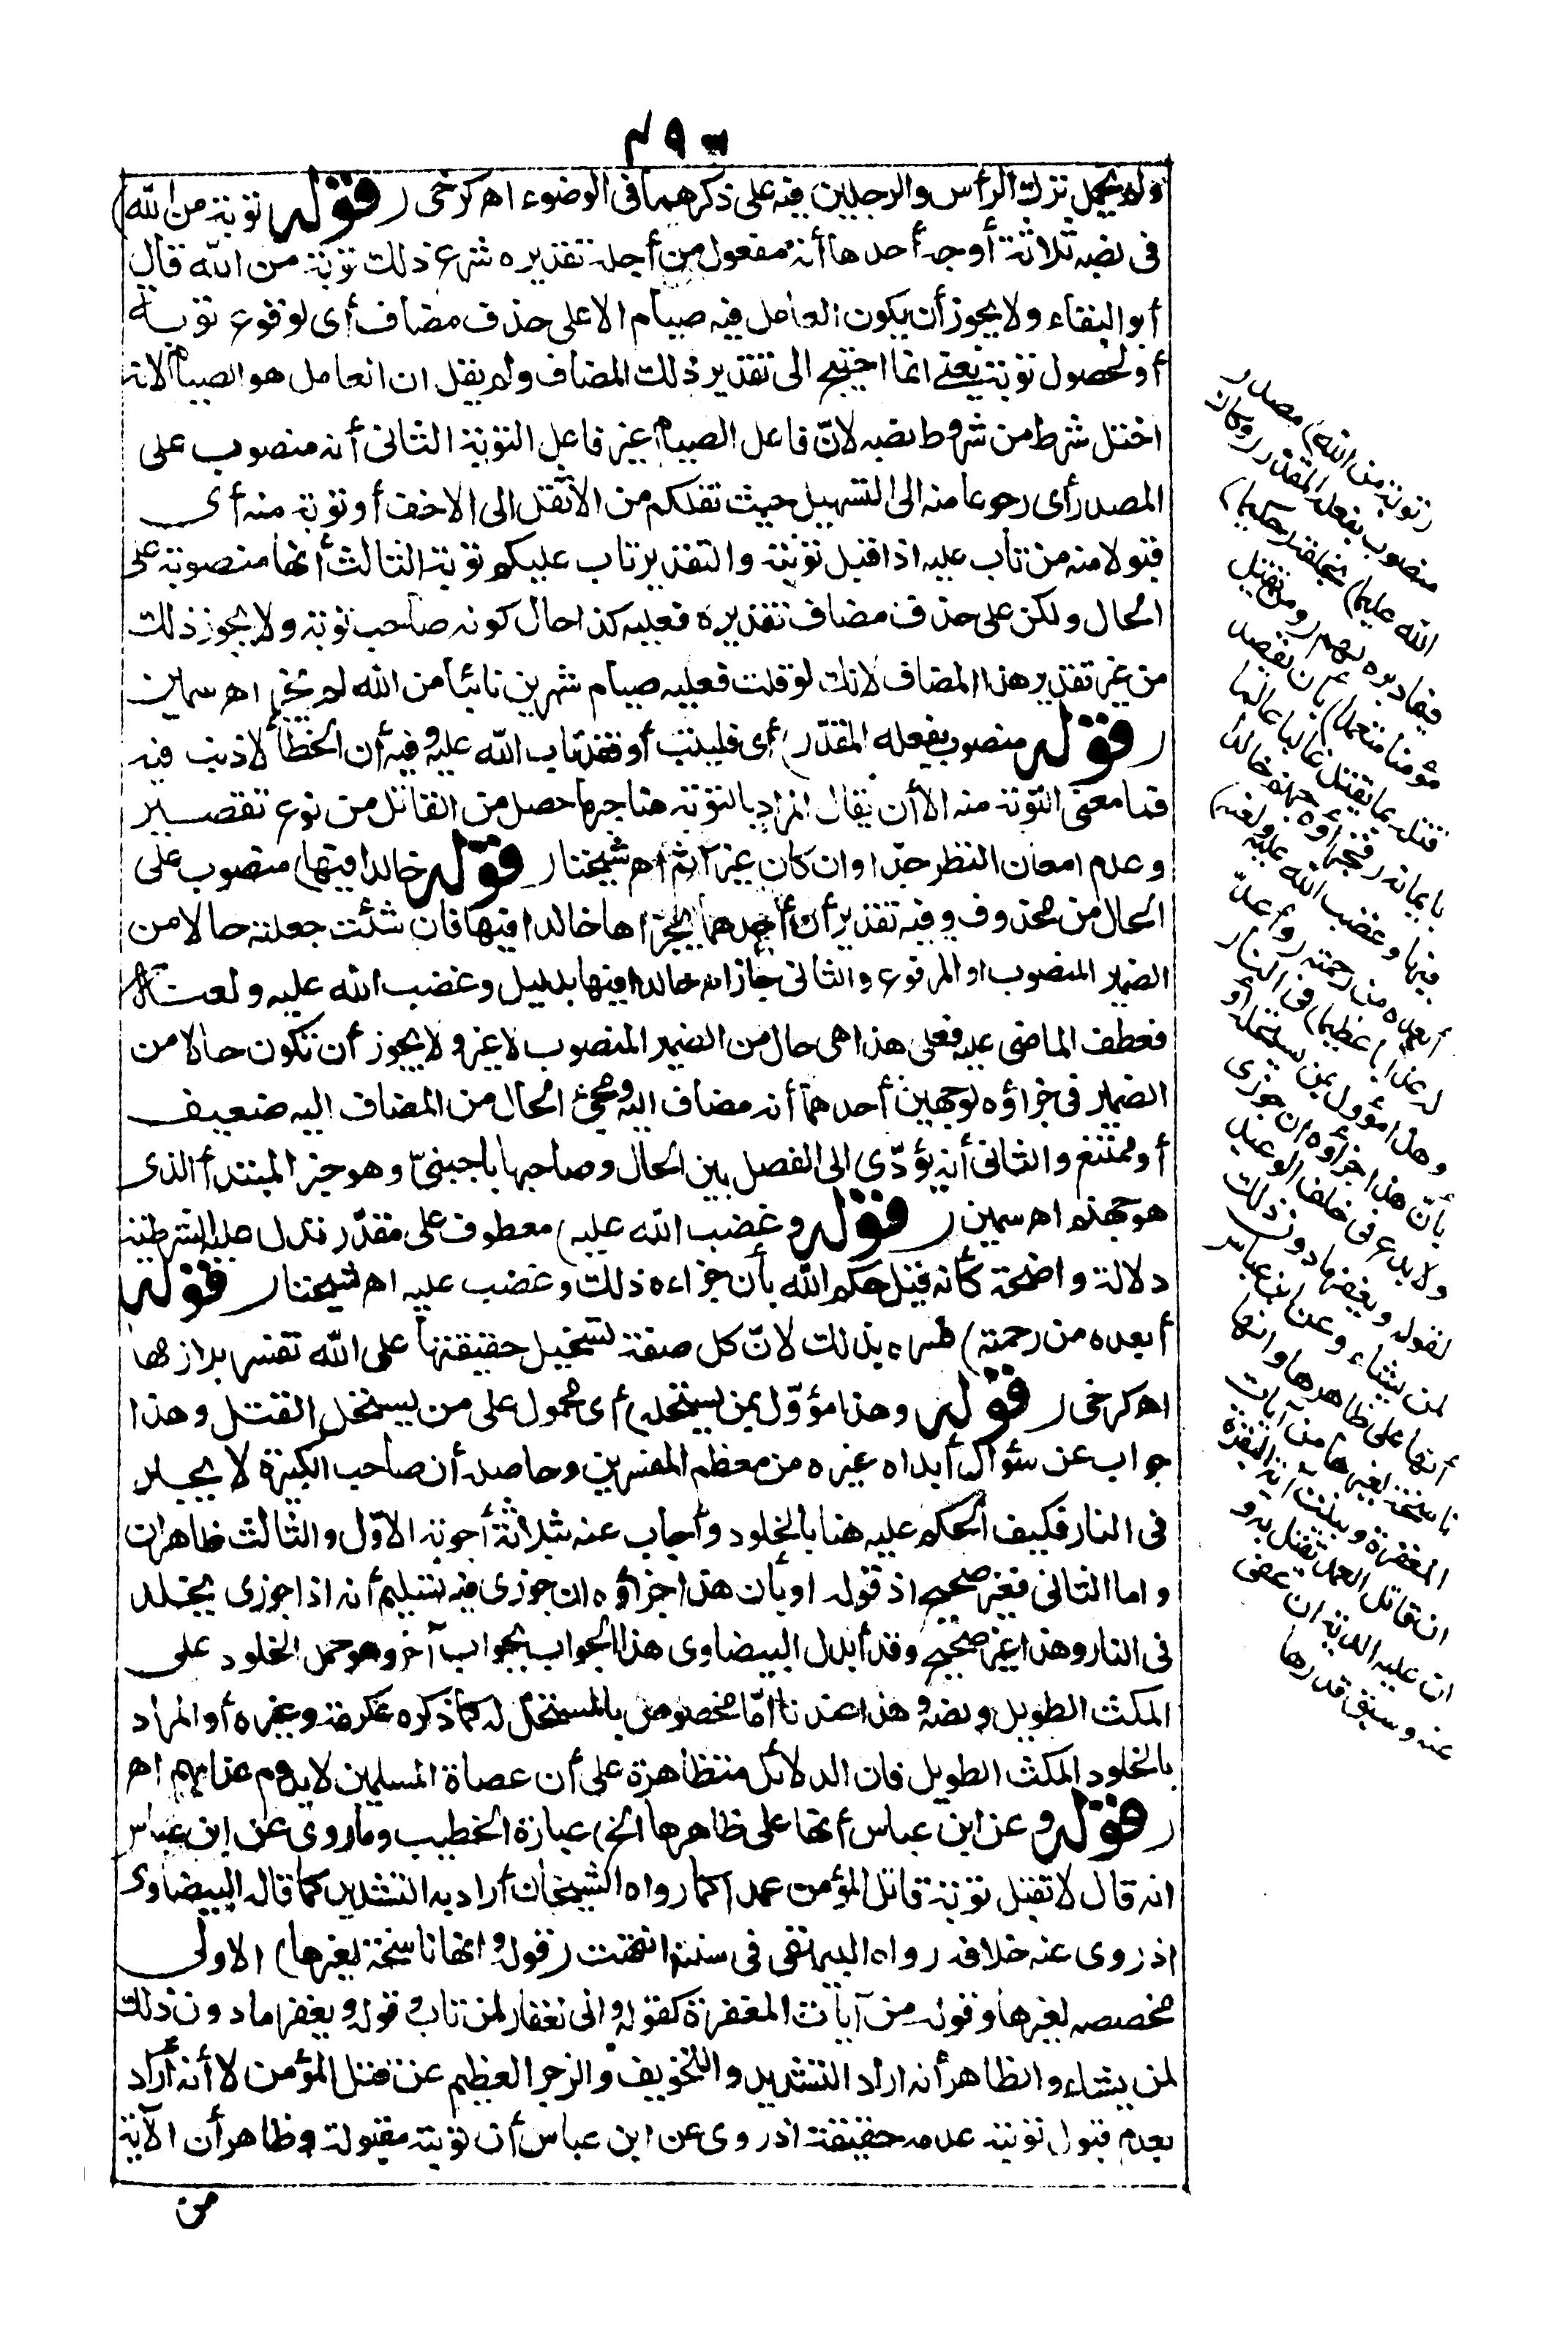 ٤٩٣
ولم يحمل ترك الرأس والرجلين فيه على ذكرهما فى الوضوء اه كرخى (قوله توبة من الله)
فى نصبه ثلاثة أوجه أحدها أنه مفعول من أجله تقديره شرع ذلك توبة من الله قال
أبو البقاء ولا يجوز أن يكون العامل فيه صيام الا على حذف مضاف أى لوقوع توبة
أو لحصول توبة يعنى انما احتيج الى تقدير ذلك المضاف ولم يقل ان العامل هو الصيام لانه
اختل شرط من شروط نصبه لانّ فاعل الصيام غير فاعل التوبة الثانى أنه منصوب على
المصدر أى رجوعا منه الى التسهيل حيث نقلكم من الأثقل الى الاخف أو توبة منه أى
قبولا منه من تاب عليه اذا قبل توبته والتقدير تاب عليكم توبة الثالث أنها منصوبة على
الحال ولكن على حذف مضاف تقديره فعليه كذا حال كونه صاحب توبة ولا يجوز ذلك
من غير تقدير هذا المضاف لانك لو قلت فعليه صيام شهرين تائبا من الله لم يجز اه سمين
(قوله منصوب بفعله المقدّر) أى فليتب أو فقد تاب الله عليه وفيه أن الخطأ لا ذنب فيه
فما معنى التوبة منه الا أن يقال المراد بالتوبة هنا جبر ما حصل من القاتل من نوع تقصير
وعدم امعان النظر جدّا وان كان غير آثم اه شيخنا (قوله خالدا فيها) منصوب على
الحال من محذوف وفيه تقديران أحدهما يجزاها خالدا فيها فان شئت جعلته حالا من
الضمير المنصوب او المرفوع والثانى جازاه خالدا فيها بدليل وغضب الله عليه ولعنه
فعطف الماضى عليه فعلى هذا هى حال من الضمير المنصوب لا غير ولا يجوز أن تكون حالا من
الضمير فى جزاؤه لوجهين أحدهما أنه مضاف اليه ومجىء الحال من المضاف اليه ضعيف
أو ممتنع والثانى أنه يؤدّى الى الفصل بين الحال وصاحبها بأجنبىّ وهو خبر المبتدأ الذى
هو جهنم اه سمين (قوله وغضب الله عليه) معطوف على مقدّر تدل عليه الشرطية
دلالة واضحة كأنه قيل حكم الله بأن جزاءه ذلك وغضب عليه اه شيخنا (قوله
أبعده من رحمته) فسره بذلك لانّ كل صفة تستحيل حقيقتها على الله تفسر بلازمها
اه كرخى (قوله وهذا مؤوّل بمن يستحله) أى محمول على من يستحل القتل وهذا
جواب عن سؤال أبداه غيره من معظم المفسرين وحاصله أن صاحب الكبيرة لا يخلد
فى النار فكيف الحكم عليه هنا بالخلود وأجاب عنه بثلاثة أجوبة الاوّل والثالث ظاهران
واما الثانى فغير صحيح اذ قوله او بأن هذا جزاؤه ان جوزى فيه تسليم أنه اذا جوزى يخلد
فى النار وهذا غير صحيح وقد أبدل البيضاوى هذا الجواب بجواب آخر وهو حمل الخلود على
المكث الطويل ونصه وهذا عندنا امّا مخصوص بالمستحل له كما ذكره عكرمة وغيره أو المراد
بالخلود المكث الطويل فان الدلائل متظاهرة على أن عصاة المسلمين لا يدوم عذابهم اه
(قوله وعن ابن عباس أنها على ظاهرها الخ) عبارة الخطيب وما روى عن ابن عباس
انه قال لا تقبل توبة قاتل المؤمن عمدا كما رواه الشيخان أراد به التشديد كما قاله البيضاوى
اذ روى عنه خلافه رواه البيهقى فى سننه انتهت (قوله وانها ناسخة لغيرها) الاولى
مخصصه لغيرها وقوله من آيات المغفرة كقوله وانى لغفار لمن تاب وقوله ويغفر ما دون ذلك
لمن يشاء والظاهر أنه اراد التشديد والتخويف والزجر العظيم عن قتل المؤمن لا أنه أراد
بعدم قبول توبته عدمه حقيقة اذ روى عن ابن عباس أن توبته مقبولة وظاهر أن الآية
من
(توبة من الله) مصدر
منصوب بفعله المقدر (وكان
الله عليما) بخلقه (حكيما)
فيما دبره لهم (ومن يقتل
مؤمنا متعمدا) بأن يقصد
قتله بما يقتل غالبا عالما
بايمانه (فجزاؤه جهنم خالدا
فيها وغضب الله عليه ولعنه)
أبعده من رحمته (وأعدّ
له عذابا عظيما) فى النار
وهذا مؤول بمن يستحله أو
بأنّ هذا جزاؤه ان جوزى
ولا بدع فى خلف الوعيد
لقوله ويغفر ما دون ذلك
لمن يشاء وعن ابن عباس
أنها على ظاهرها وانها
ناسخة لغيرها من آيات
المغفرة وبينت آية البقرة
ان قاتل العمد يقتل به و
ان عليه الدية ان عفى
عنه وسبق قدرها